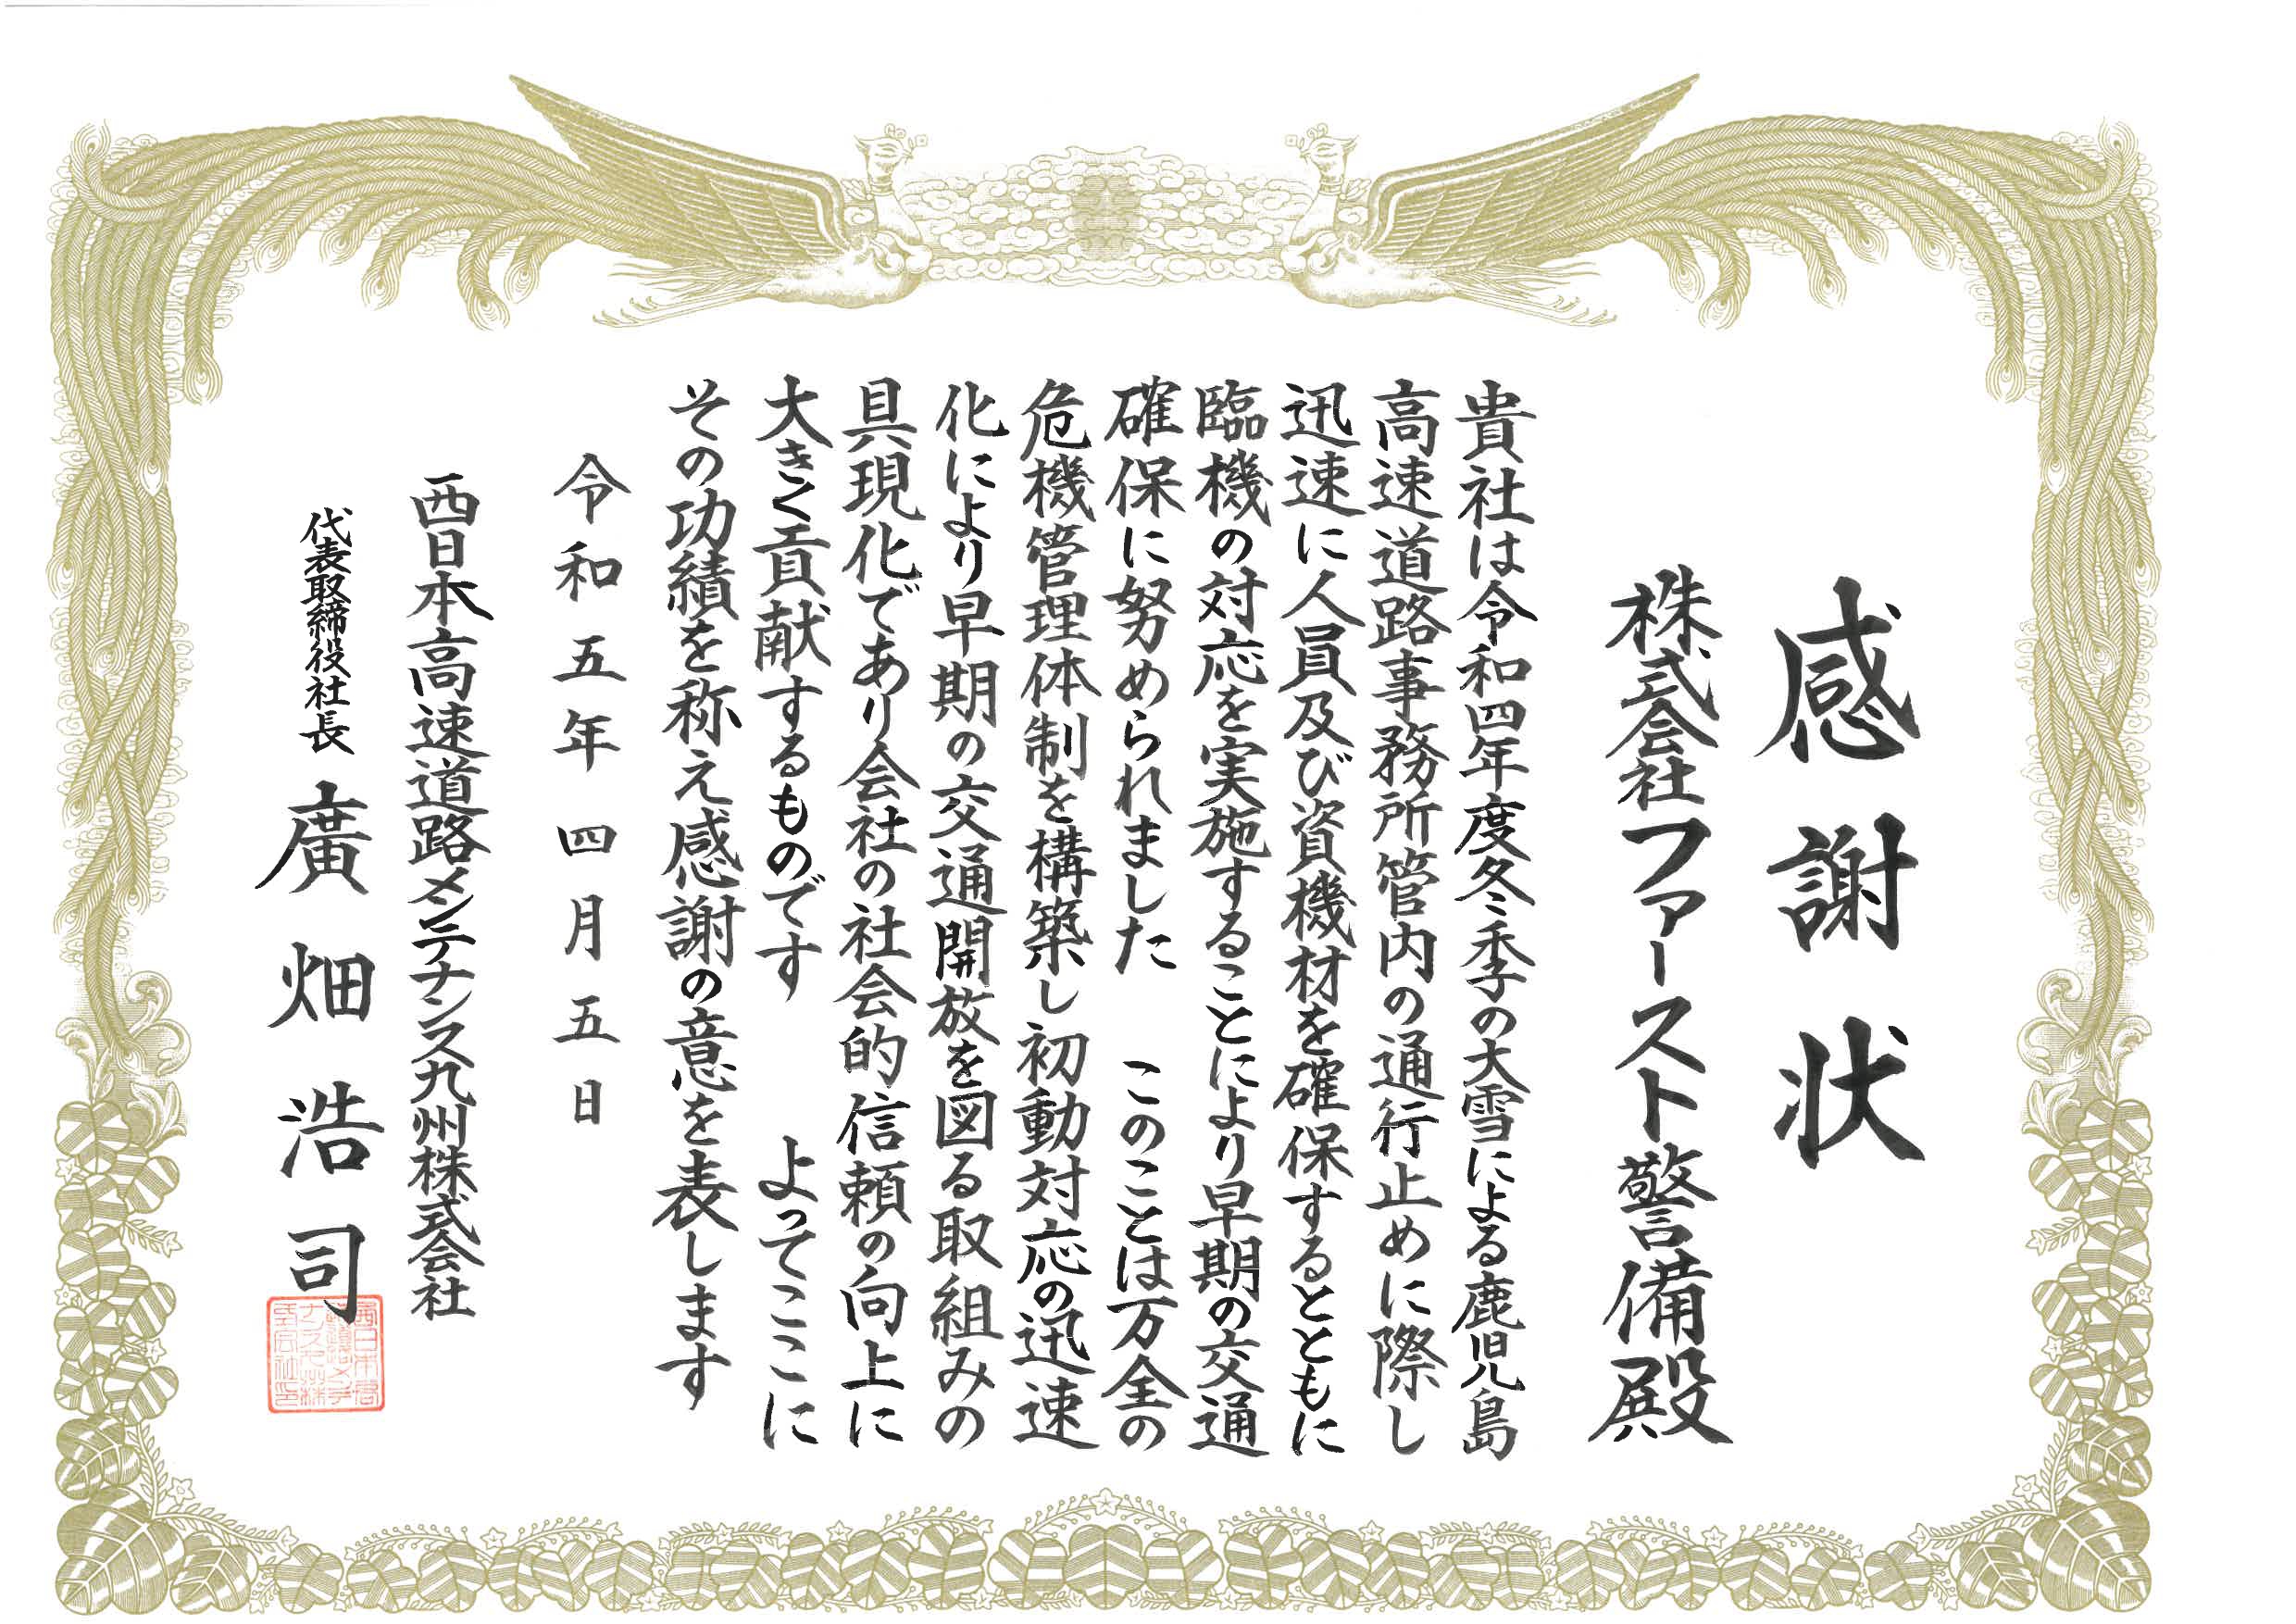 感謝状
株式会社ファースト警備殿
貴社は令和四年度冬季の大雪による鹿児島
高速道路事務所管内の通行止めに際し
迅速に人員及び資機材を確保するとともに
臨機の対応を実施することにより早期の交通
確保に努められました　このことは万全の
危機管理体制を構築し初動対応の迅速
化により早期の交通開放を図る取組みの
具現化であり会社の社会的信頼の向上に
大きく貢献するものです　よってここに
その功績を称え感謝の意を表します
令和五年四月五日
西日本高速道路メンテナンス九州株式会社
代表取締役社長 廣畑浩司